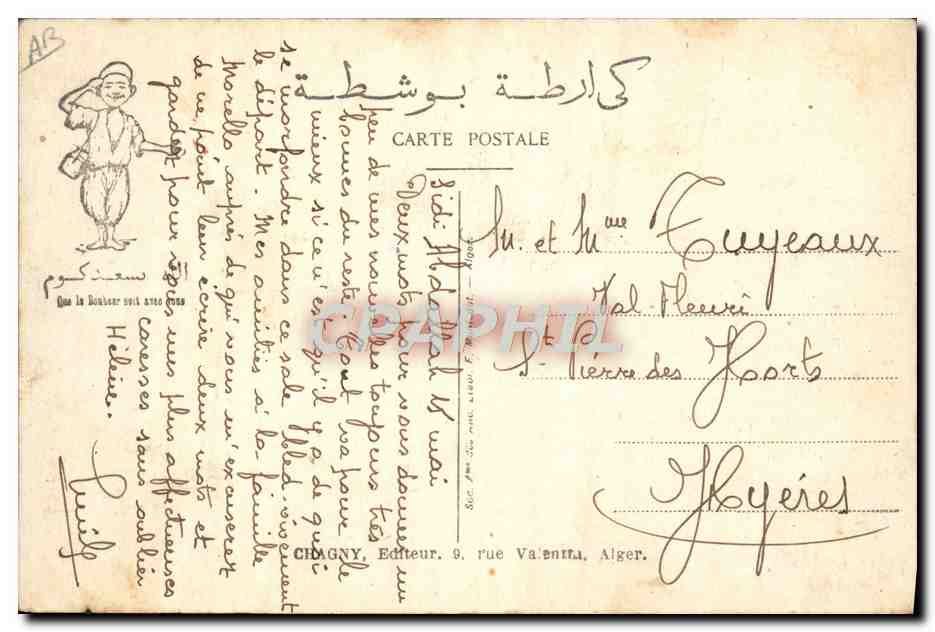 AB
كارطة بوسطة
CARTE POSTALE
Que la Douceur soit avec vous
Sidi Abdallah 15 mai
Deux mots pour vous donner un
peu de mes nouvelles toujours très
bonnes du reste, tout va pour le
mieux si ce n'est qu'il y a de quoi
se morfondre dans ce sale bled vivement
le départ. Mes amitiés à la famille
Morello auprès de qui vous m'excuserez
de ne point leur écrire deux mots et
gardez pour vous mes plus affectueuses
caresses sans oublier
Hélène.
M. et Mme Tuyeaux
Val Fleuri
St Pierre des Horts
Hyéres
CRAPHIL
CHAGNY, Editeur. 9, rue Valentin, Alger.